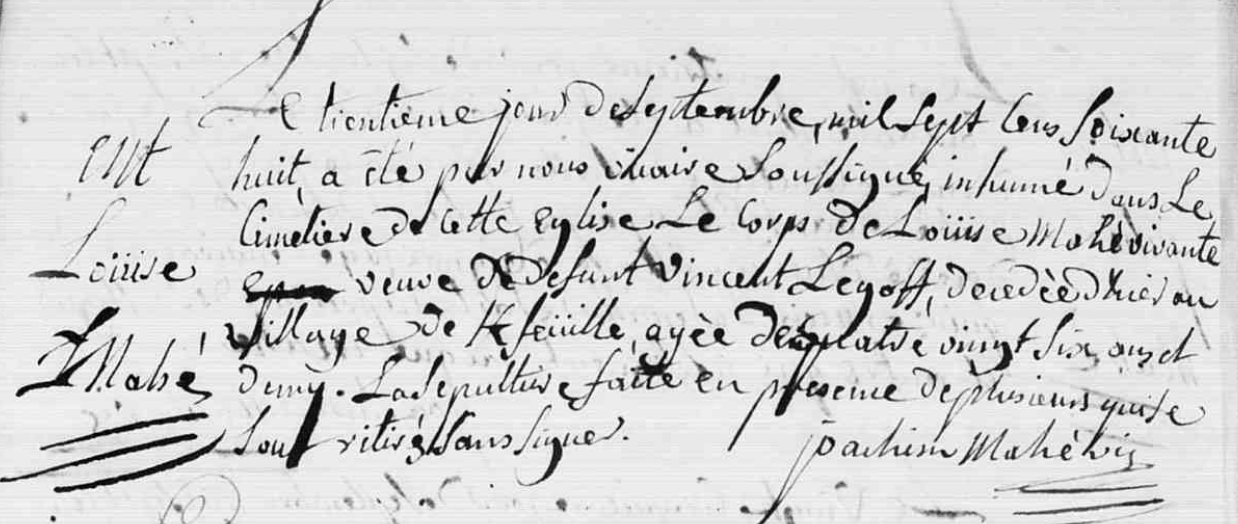 Le trentieme jour de Septembre, mil Sept Cens Soixante
Ent
huit, a été par nous vicaire Soussigné, inhumé dans Le
Cimetiere de cette Eglise Le Corps de Loüise Mahé vivante
Loüise
veuve de deffunt Vincent Legoff, decedèe d'hier au
village de Kfeüille, agèe de quatre vingt Six ans et
Mahé
demy. La Sepulture faitte en presence de plusieurs qui Se
Sont retirés Sans Signer.
joachim Mahé vic